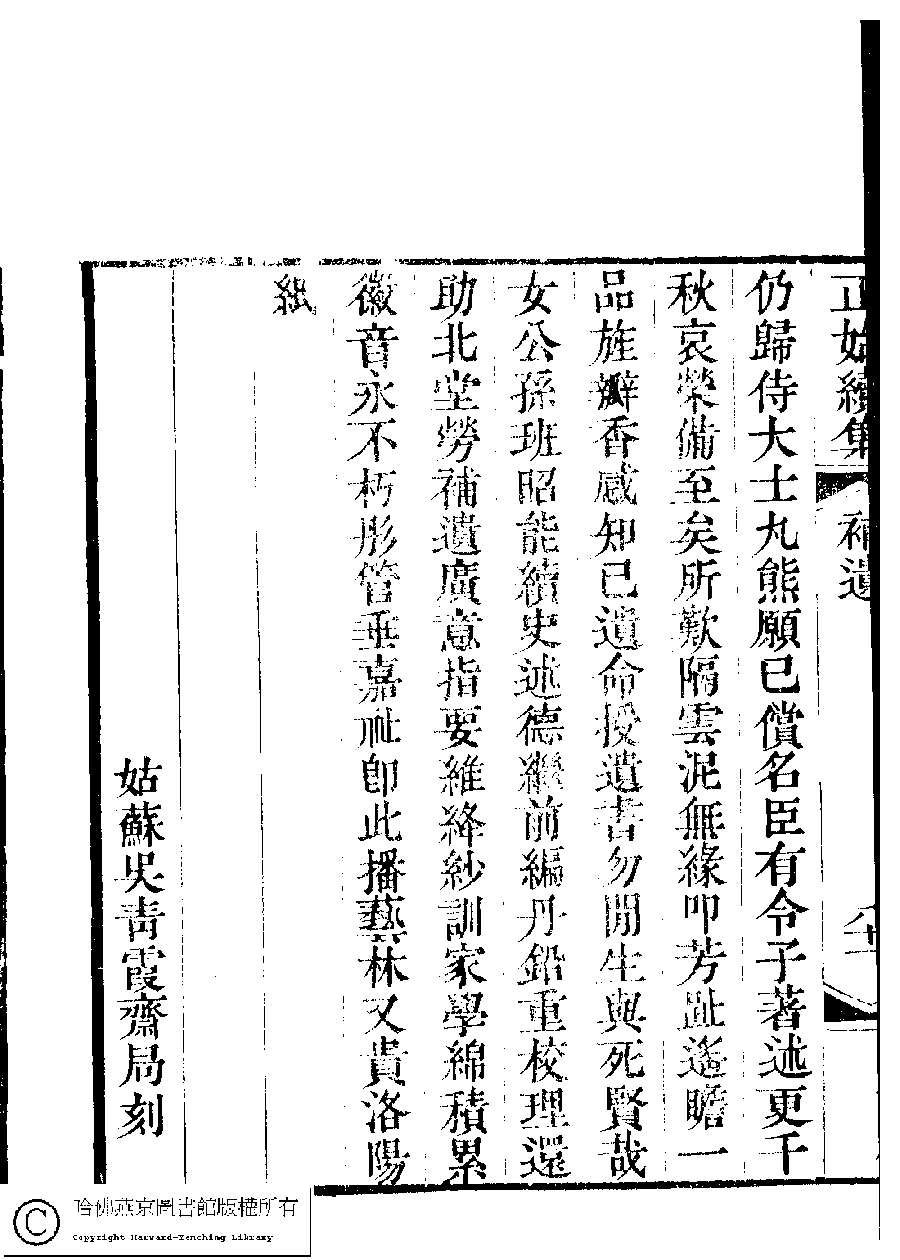 正始續集
補遺
八十一
仍歸侍大士丸熊願已償名臣有令子著述更千
秋哀榮備至矣所歎隔雲泥無緣叩芳趾遙瞻一
品旌瓣香感知已遺命授遺書勿閒生與死賢哉
女公孫班昭能續史述德繼前編丹鉛重校理還
助北堂勞補遺廣意指要維絳紗訓家學綿積累
徽音永不朽彤管垂嘉祉卽此播藝林又貴洛陽
紙
姑蘇吳青霞齋局刻
哈佛燕京圖書館版權所有
Copyright Harvard-Yenching Library